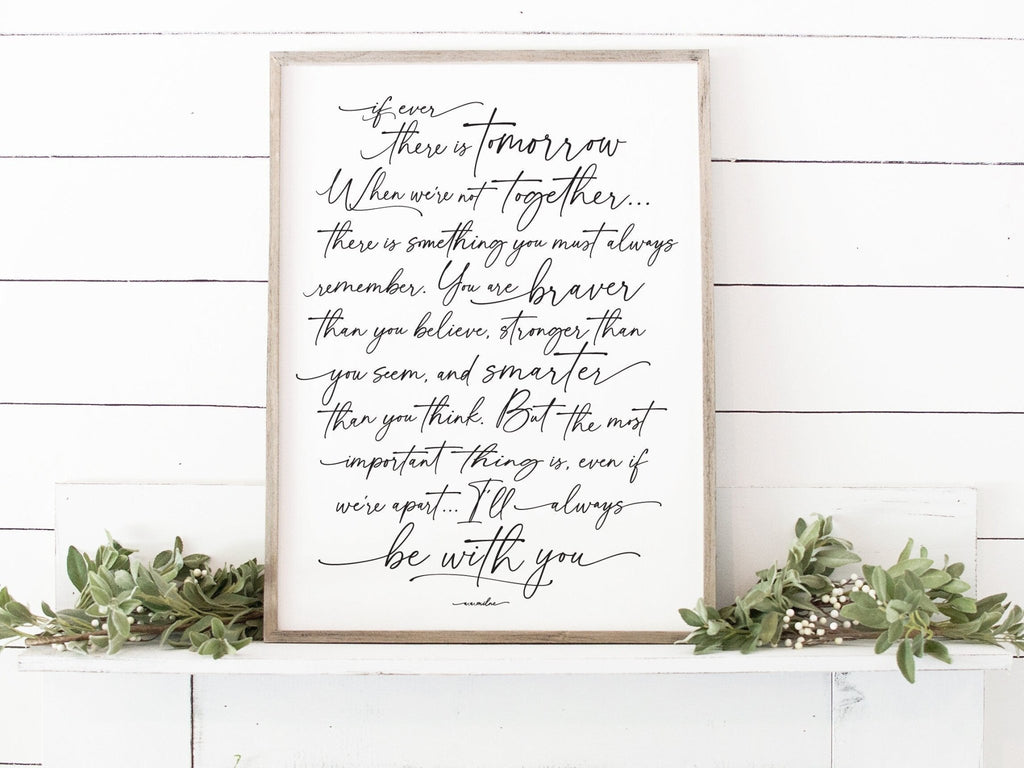 if ever
there is tomorrow
When we're not together...
there is something you must always
remember. You are braver
than you believe, stronger than
you seem, and smarter
than you think. But the most
important thing is, even if
we're apart... I'll always
be with you
a.a. milne